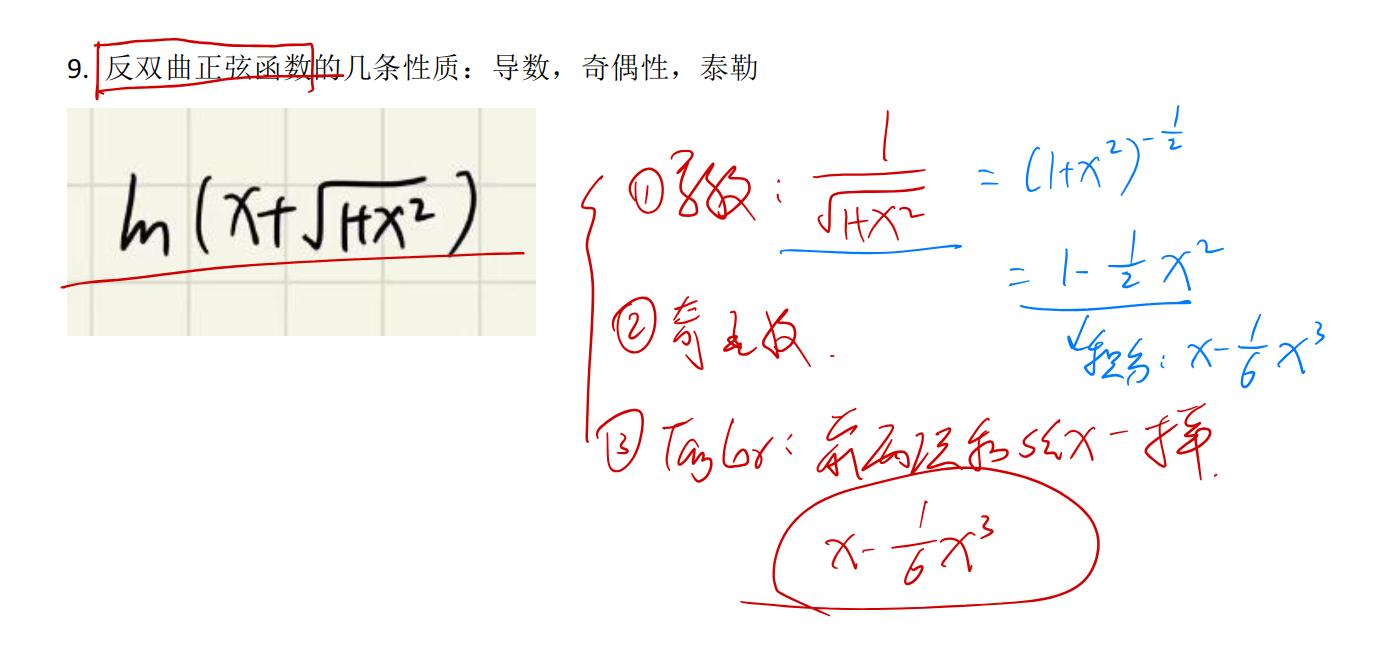 9. 反双曲正弦函数的几条性质：导数，奇偶性，泰勒
ln(x+√(1+x²))
① 导数：1/√(1+x²) = (1+x²)^(-1/2)
= 1 - 1/2 x²
② 奇函数.
积分：x - 1/6 x³
③ Taylor：前两项和sinx一样.
x - 1/6 x³